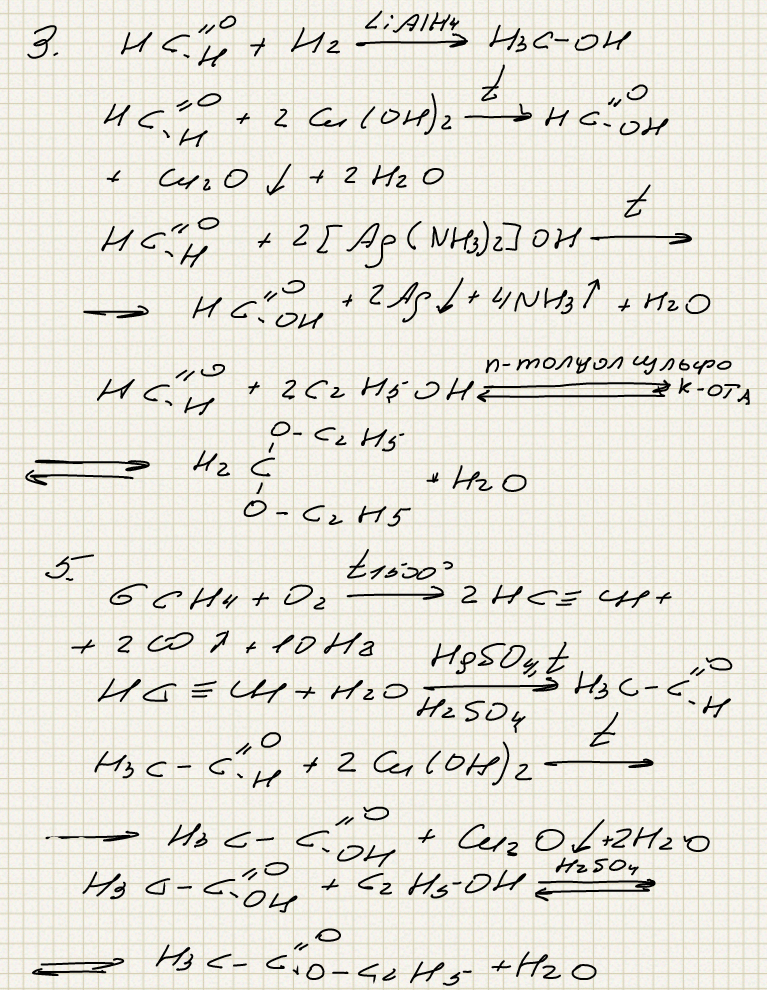 3. HC=O-H + H2 LiAlH4→ H3C-OH
HC=O-H + 2 Cu(OH)2 t→ HC=O-OH
+ Cu2O↓ + 2H2O
HC=O-H + 2[Ag(NH3)2]OH t→
→ HC=O-OH + 2Ag↓ + 4NH3↑ + H2O
HC=O-H + 2C2H5OH п-толуолсульфо к-ота ⇌
⇌ H2C O-C2H5 O-C2H5 + H2O
5. 6CH4 + O2 t1500°→ 2HC≡CH +
+ 2CO↑ + 10H2
HC≡CH + H2O HgSO4, t H2SO4→ H3C-C=O-H
H3C-C=O-H + 2Cu(OH)2 t→
→ H3C-C=O-OH + Cu2O↓ + 2H2O
H3C-C=O-OH + C2H5-OH H2SO4⇌
⇌ H3C-C=O-O-C2H5 + H2O